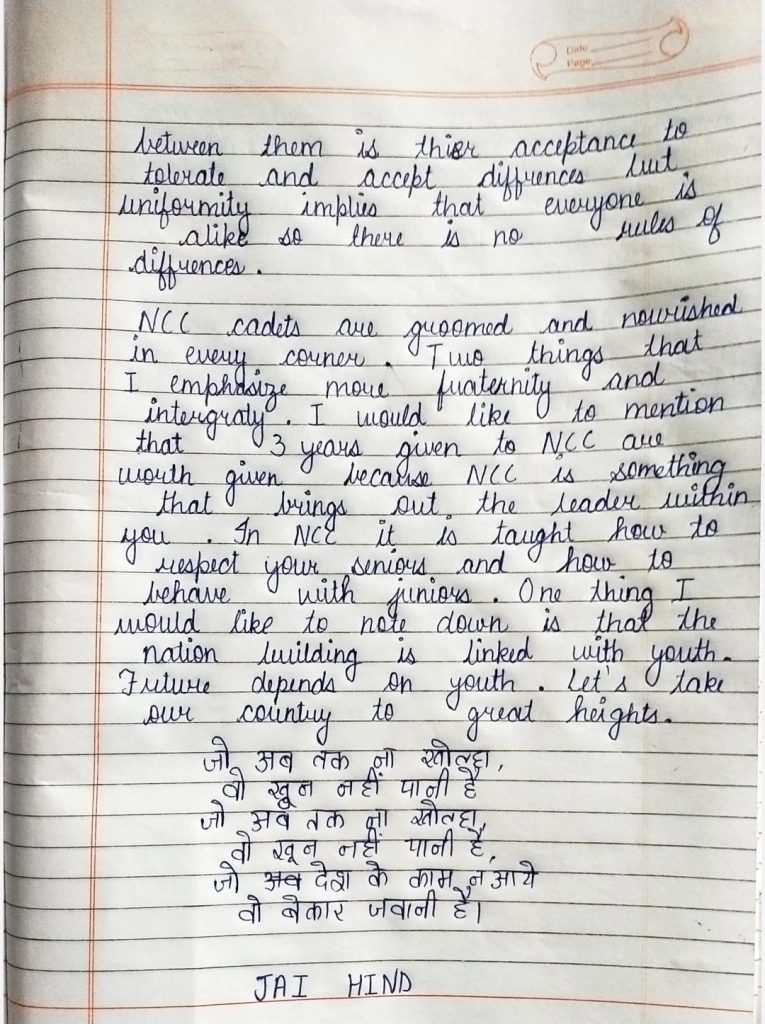 Date
Page
between them is thier acceptance to
tolerate and accept diffrences but
uniformity implies that everyone is
alike so there is no rules of
diffrences.
NCC cadets are groomed and nourished
in every corner. Two things that
I emphasize more fraternity and
intergraty. I would like to mention
that 3 years given to NCC are
worth given because NCC is something
that brings out the leader within
you. In NCC it is taught how to
respect your seniors and how to
behave with juniors. One thing I
would like to note down is that the
nation building is linked with youth.
Future depends on youth. Let's take
our country to great heights.
जो अब तक ना खोलहा,
वो खून नहीं पानी है
जो अब तक ना खोलहा,
वो खून नहीं पानी है,
जो अब देश के काम न आये
वो बेकार जवानी है।
JAI HIND